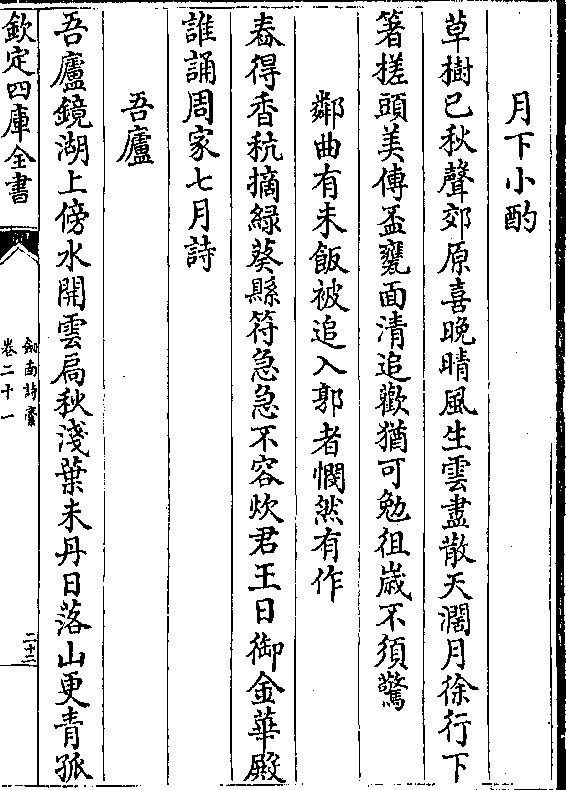 月下小酌
草樹已秋聲郊原喜晚晴風生雲盡散天濶月徐行下
箸搓頭美傳盃甕面清追歡猶可勉徂歳不須驚
鄰曲有未飯被追入郭者憫然有作
舂得香秔摘綠葵縣符急急不容炊君王日御金華殿
誰誦周家七月詩
吾廬
吾廬鏡湖上傍水開雲扃秋淺葉未丹日落山更青孤
欽定四庫全書
劍南詩藁
卷二十一
二十二